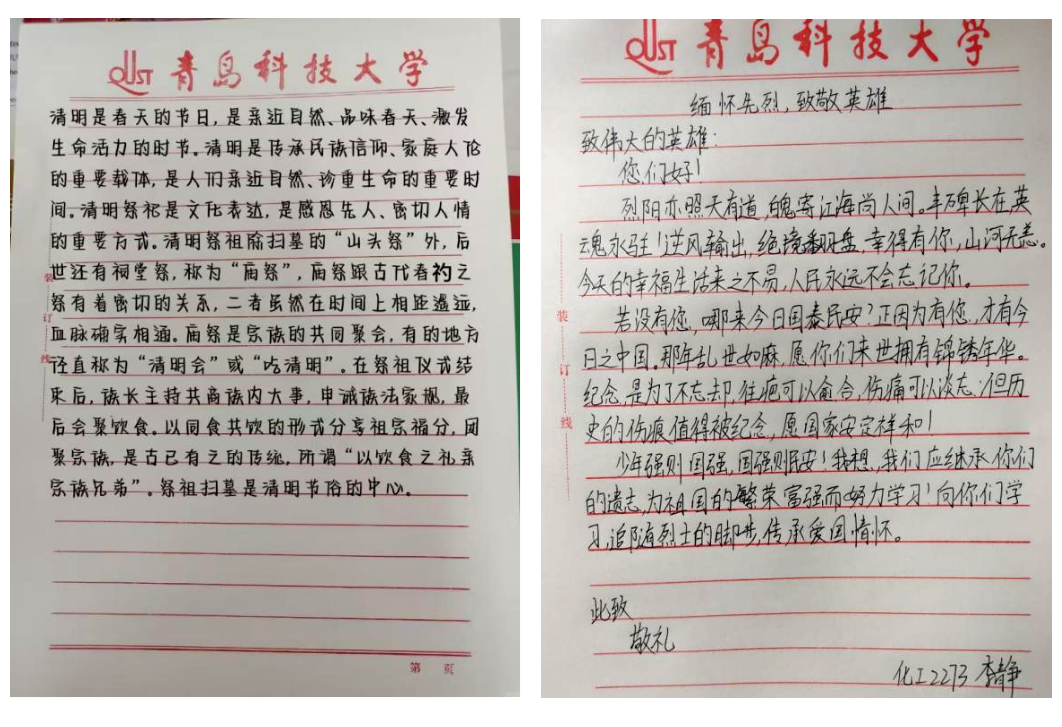 QUST 青岛科技大学
清明是春天的节日,是亲近自然、品味春天、激发
生命活力的时节。清明是传承民族信仰、家庭人伦
的重要载体,是人们亲近自然、珍重生命的重要时
间。清明祭祀是文化表达,是感恩先人、密切人情
的重要方式。清明祭祖除扫墓的“山头祭”外,后
世还有祠堂祭,称为“庙祭”,庙祭跟古代春礿之
祭有着密切的关系,二者虽然在时间上相距遥远,
血脉确实相通。庙祭是宗族的共同聚会,有的地方
径直称为“清明会”或“吃清明”。在祭祖仪式结
束后,族长主持共商族内大事,申诫族法家规,最
后会聚饮食。以同食共饮的形式分享祖宗福分,团
聚宗族,是古已有之的传统,所谓“以饮食之礼亲
宗族兄弟”。祭祖扫墓是清明节俗的中心。
装
订
线
第 页
QUST 青岛科技大学
缅怀先烈,致敬英雄
致伟大的英雄:
您们好!
烈阳亦照天有道,魄寄江海尚人间。丰碑长在,英
魂永驻!逆风输出,绝境翻盘,幸得有你,山河无恙。
今天的幸福生活来之不易,人民永远不会忘记你。
若没有您,哪来今日国泰民安?正因为有您,才有今
日之中国。那年乱世如麻,愿你们来世拥有锦锈年华。
纪念,是为了不忘却,往疤可以愈合,伤痛可以淡忘,但历
史的伤痕值得被纪念,愿国家安定祥和!
少年强则国强,国强则民安!我想,我们应继承你们
的遗志,为祖国的繁荣富强而努力学习!向你们学
习,追随烈士的脚步,传承爱国情怀。
装
订
线
此致
敬礼
化工2273 李静